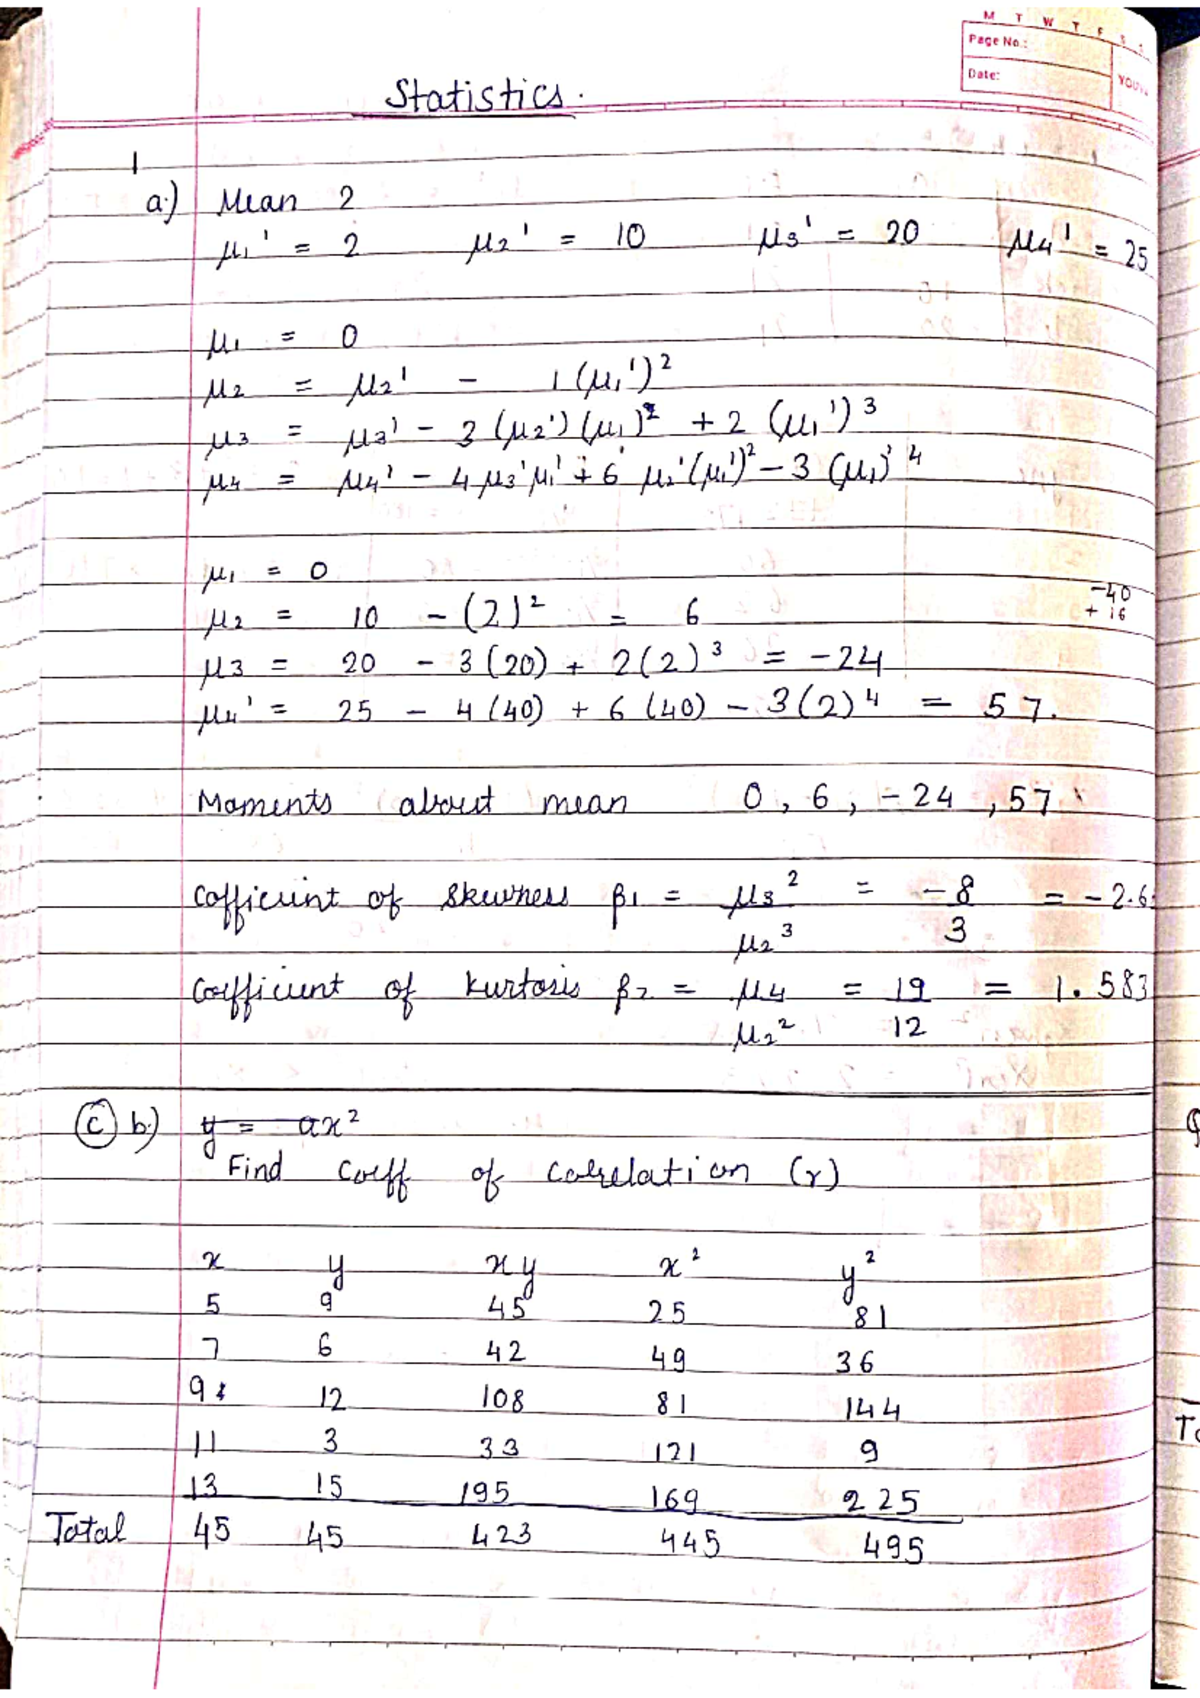 M T W T F S S
Page No.:
Date:
Statistics.
1
a.) Mean 2
μ1' = 2 μ2' = 10 μ3' = 20 μ4' = 25
μ1 = 0
μ2 = μ2' - 1(μ1')²
μ3 = μ3' - 3(μ2')(μ1') + 2(μ1')³
μ4 = μ4' - 4μ3'μ1' + 6 μ2'(μ1')² - 3(μ1)'⁴
μ1 = 0
-40
μ2 = 10 - (2)² = 6
+ 16
μ3 = 20 - 3(20) + 2(2)³ = -24
μ4' = 25 - 4(40) + 6(40) - 3(2)⁴ = 57.
Moments about mean 0, 6, -24, 57
Cofficient of skewness β1 = μ3²/μ2³ = -8/3 = -2.6
Coefficient of kurtosis β2 = μ4/μ2² = 19/12 = 1.583
(c) b.) y = ax²
Find coeff of correlation (r)
x y xy x² y²
5 9 45 25 81
7 6 42 49 36
9 12 108 81 144
11 3 33 121 9
13 15 195 169 225
Total 45 45 423 445 495